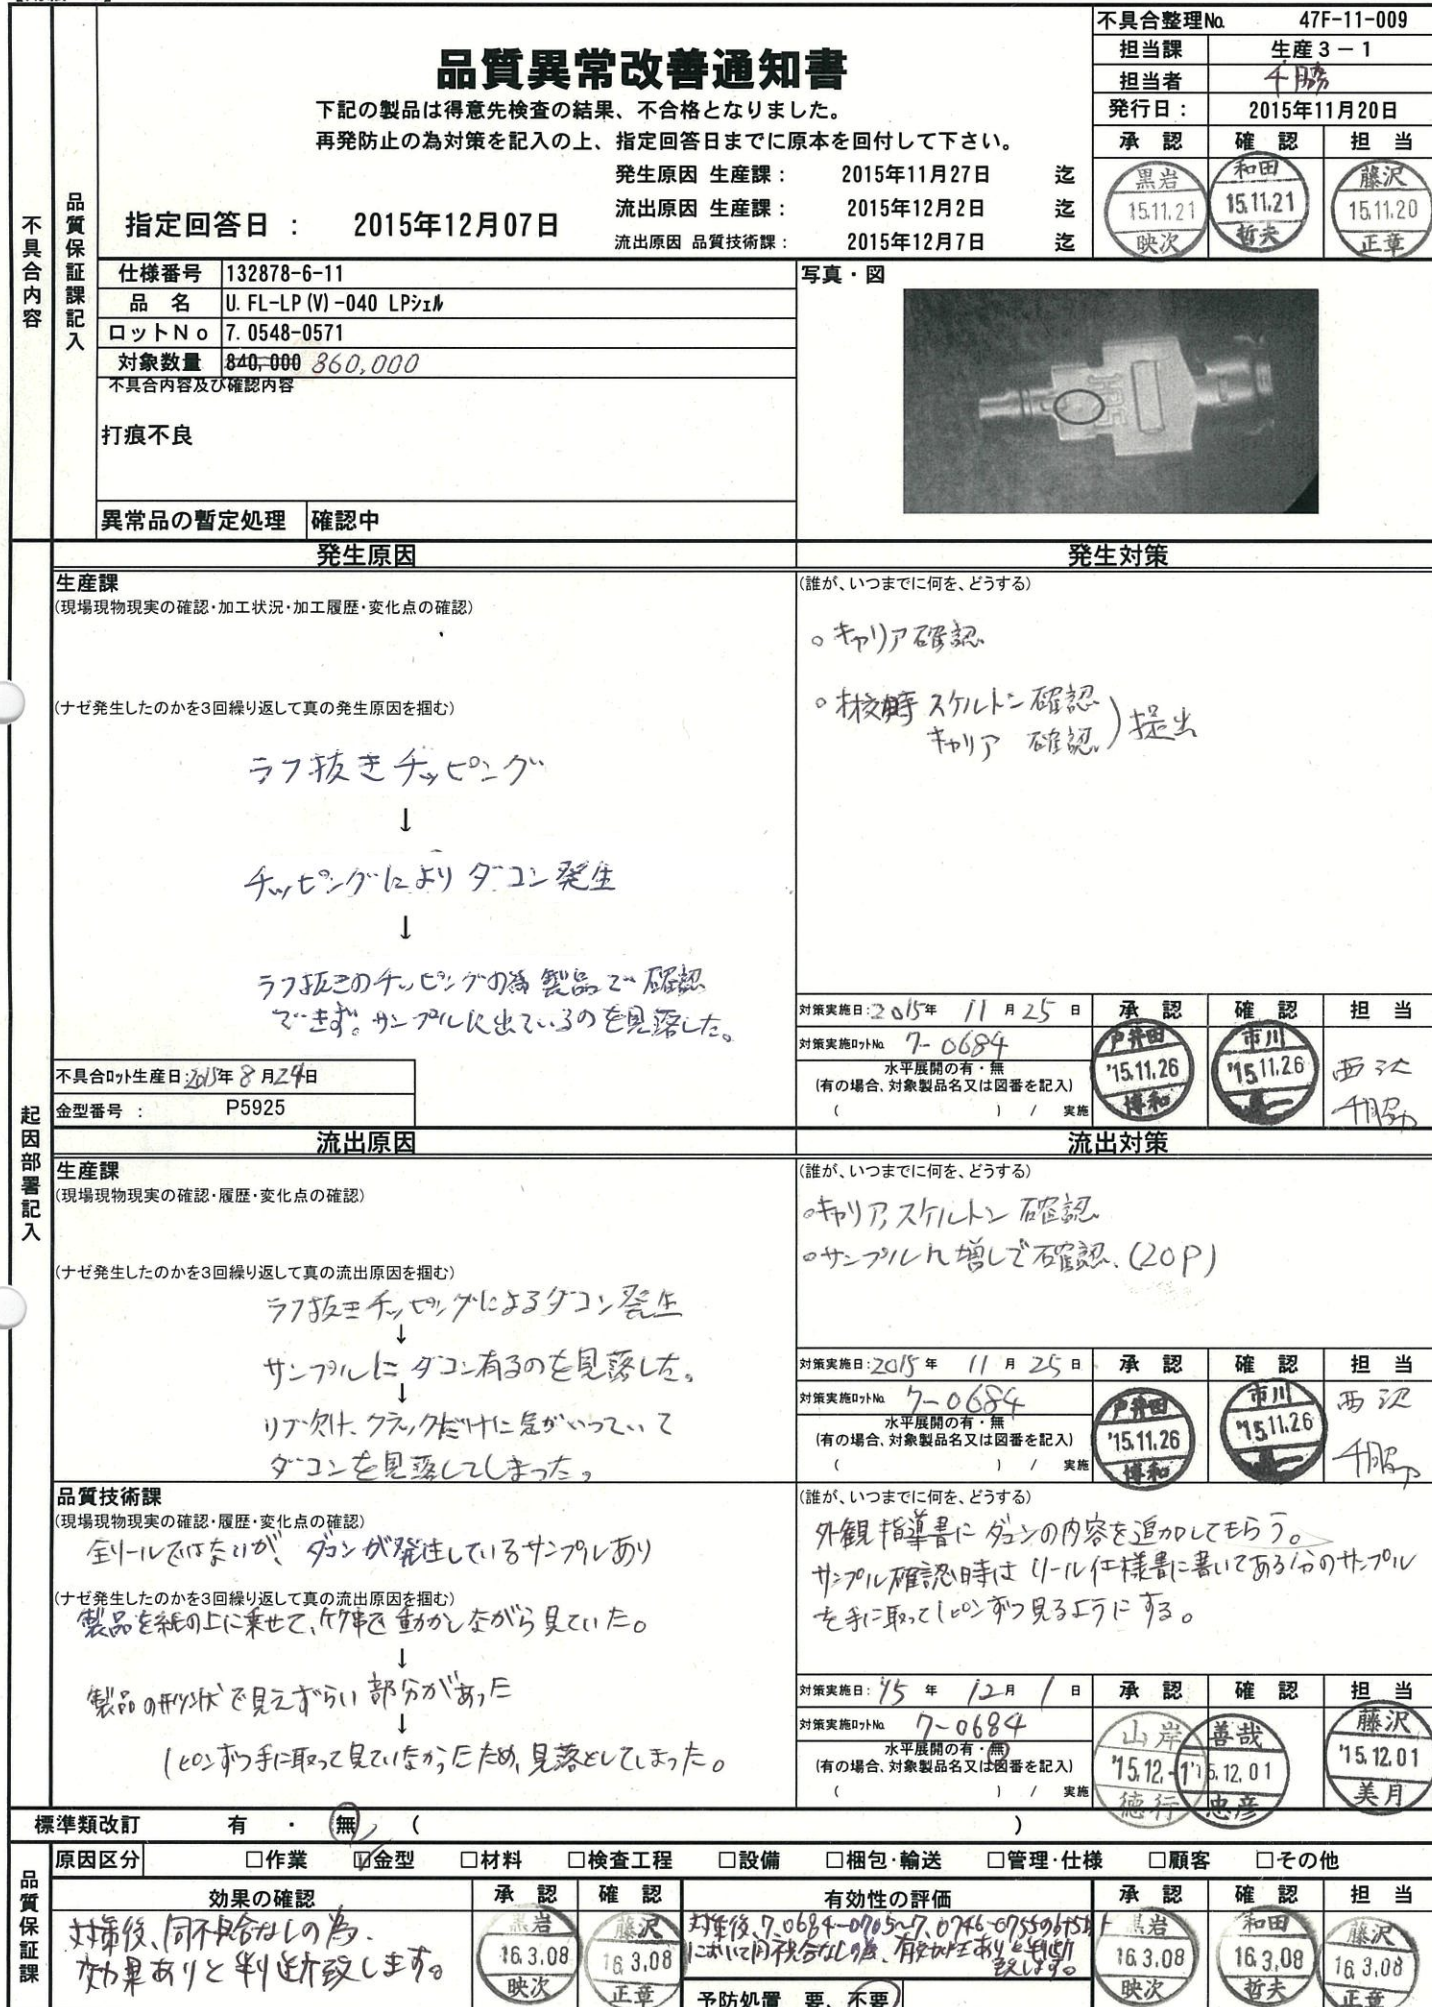 不具合整理No. 47F-11-009
担当課 生産3-1
担当者 千勝
発行日： 2015年11月20日
承認 確認 担当
黒岩 15.11.21 映次
和田 15.11.21 哲夫
藤沢 15.11.20 正章
品質異常改善通知書
下記の製品は得意先検査の結果、不合格となりました。
再発防止の為対策を記入の上、指定回答日までに原本を回付して下さい。
発生原因 生産課： 2015年11月27日 迄
流出原因 生産課： 2015年12月2日 迄
流出原因 品質技術課： 2015年12月7日 迄
指定回答日 ： 2015年12月07日
不具合内容
品質保証課記入
仕様番号 132878-6-11
品名 U.FL-LP(V)-040 LPシェル
ロットNo 7.0548-0571
対象数量 840,000 860,000
不具合内容及び確認内容
打痕不良
異常品の暫定処理 確認中
写真・図
HRS
起因部署記入
発生原因
生産課
(現場現物現実の確認・加工状況・加工履歴・変化点の確認)
(ナゼ発生したのかを3回繰り返して真の発生原因を掴む)
ラフ抜きチッピング
↓
チッピングにより ダコン発生
↓
ラフ抜きのチッピングの為 製品で確認
できず。サンプルに出ているのを見落した。
不具合ロット生産日:2015年8月24日
金型番号 ： P5925
発生対策
(誰が、いつまでに何を、どうする)
○キャリア確認
○ スケルトン確認
キャリア 確認 )提出
対策実施日:2015年 11月25日
対策実施ロットNo. 7-0684
水平展開の有・無
(有の場合、対象製品名又は図番を記入)
( ) / 実施
承認 確認 担当
戸井田 '15.11.26 博和
市川 '15.11.26
西沢
千勝
流出原因
生産課
(現場現物現実の確認・履歴・変化点の確認)
(ナゼ発生したのかを3回繰り返して真の流出原因を掴む)
ラフ抜きチッピングによるダコン発生
↓
サンプルに ダコン有るのを見落した。
↓
リブ欠け、クラックだけに気がいっていて
ダコンを見落してしまった。
流出対策
(誰が、いつまでに何を、どうする)
○キャリア,スケルトン 確認
○サンプル 増しで確認、(20P)
対策実施日:2015年 11月25日
対策実施ロットNo. 7-0684
水平展開の有・無
(有の場合、対象製品名又は図番を記入)
( ) / 実施
承認 確認 担当
戸井田 '15.11.26 博和
市川 '15.11.26
西沢
千勝
品質技術課
(現場現物現実の確認・履歴・変化点の確認)
全リールではないが、ダコンが発生しているサンプルあり
(ナゼ発生したのかを3回繰り返して真の流出原因を掴む)
製品を紙の上に乗せて、竹串で動かしながら見ていた。
↓
製品の形状で見えずらい部分があった
↓
1ピンずつ手に取って見ていなかったため、見落としてしまった。
(誰が、いつまでに何を、どうする)
外観指導書にダコンの内容を追加してもらう。
サンプル確認時はリール仕様書に書いてある分のサンプル
を手に取って1ピンずつ見るようにする。
対策実施日:'15年 12月1日
対策実施ロットNo. 7-0684
水平展開の有・無
(有の場合、対象製品名又は図番を記入)
( ) / 実施
承認 確認 担当
山岸 '15.12.-1 徳行
善哉 '15.12.01 忠彦
藤沢 '15.12.01 美月
標準類改訂 有 ・ 無 ( )
品質保証課
原因区分 □作業 ☑金型 □材料 □検査工程 □設備 □梱包・輸送 □管理・仕様 □顧客 □その他
効果の確認 承認 確認
対策後、同不具合なしの為、
効果ありと判断致します。
黒岩 16.3.08 映次
藤沢 16.3.08 正章
有効性の評価 承認 確認 担当
対策後、7.0684-0705~7.0746-0755の
において同不具合なしの為、有効性ありと判断
致します。
黒岩 16.3.08 映次
和田 16.3.08 哲夫
藤沢 16.3.08 正章
予防処置 要、不要